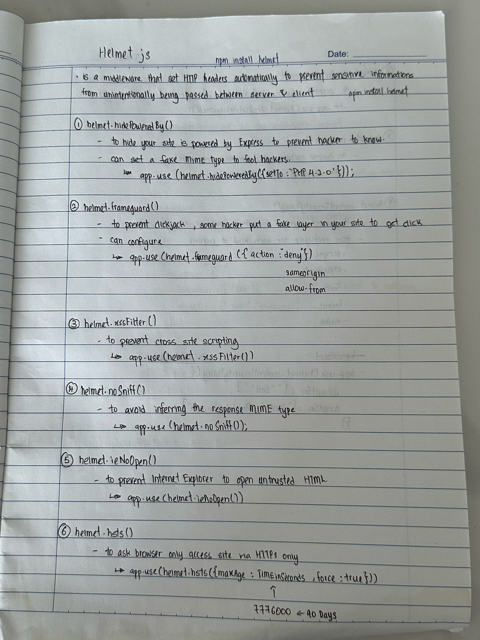 Helmet.js
npm install helmet
Date:
· is a middleware that set HTTP headers automatically to prevent sensitive informations
from unintentionally being passed between server & client npm install helmet
① helmet.hidePoweredBy()
- to hide your site is powered by Express to prevent hacker to know.
- can set a fake mime type to fool hackers.
↳ app.use(helmet.hidePoweredBy({setTo: 'PHP 4.2.0'}));
② helmet.frameguard()
- to prevent clickjack, some hacker put a fake layer in your site to get click
- can configure
↳ app.use(helmet.frameguard({action: 'deny'})
sameorigin
allow-from
③ helmet.xssFilter()
- to prevent cross site scripting
↳ app.use(helmet.xssFilter())
④ helmet.noSniff()
- to avoid inferring the response MIME type
↳ app.use(helmet.noSniff());
⑤ helmet.ieNoOpen()
- to prevent Internet Explorer to open untrusted HTML
↳ app.use(helmet.ieNoOpen())
⑥ helmet.hsts()
- to ask browser only access site via HTTPS only
↳ app.use(helmet.hsts({maxAge: TimeinSeconds, force: true}))
↑
7776000 ← 90 Days